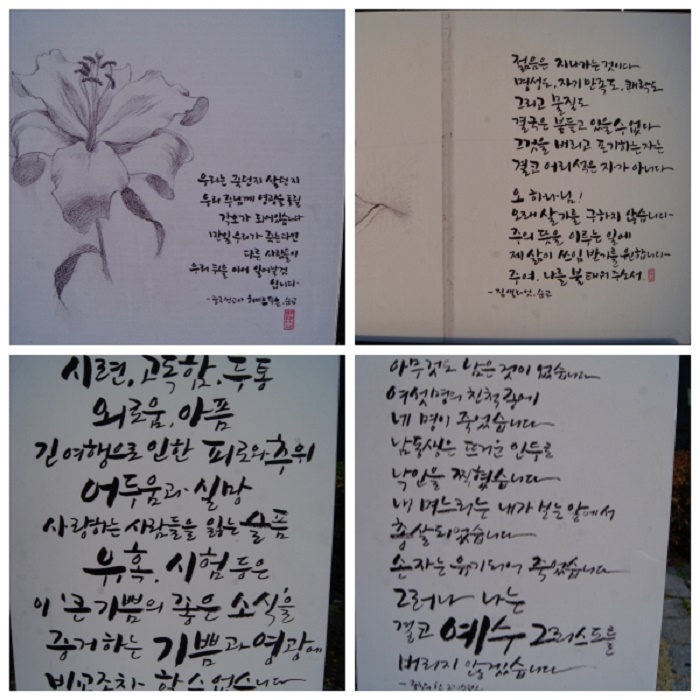 우리는 죽던지 살던지
우리 주님께 영광을 돌릴
각오가 되어있습니다
만일 우리가 죽는다면
다른 사람들이
우리 뒤를 이어 일어날 것
입니다-
순교
젊음은 지나가는 것이다-
명성도, 자기만족도, 쾌락도
그리고 물질도
결국은 붙들고 있을 수 없다
그것을 버리고 포기하는 자는
결코 어리석은 자가 아니다-
오 하나님!
오래 살기를 구하지 않습니다-
주의 뜻을 이루는 일에
제 삶이 쓰임 받기를 원합니다-
주여, 나를 불태워주소서
- 짐 엘리엇, 순교
시련, 고독함, 두통
외로움, 아픔
긴 여행으로 인한 피로와 추위
어두움과 실망
사랑하는 사람들을 잃는 슬픔
유혹, 시험 등은
이 '큰 기쁨의 좋은 소식'을
증거하는 기쁨과 영광에
비교조차 할 수 없습니다-
아무것도 남은 것이 없습니다-
여섯 명의 친척 중에
네 명이 죽었습니다-
남동생은 뜨거운 인두로
낙인을 찍혔습니다-
내 며느리는 내가 보는 앞에서
총살되었습니다-
손자는 유기되어 죽었습니다-
그러나 나는
결코 예수 그리스도를
버리지 않겠습니다-